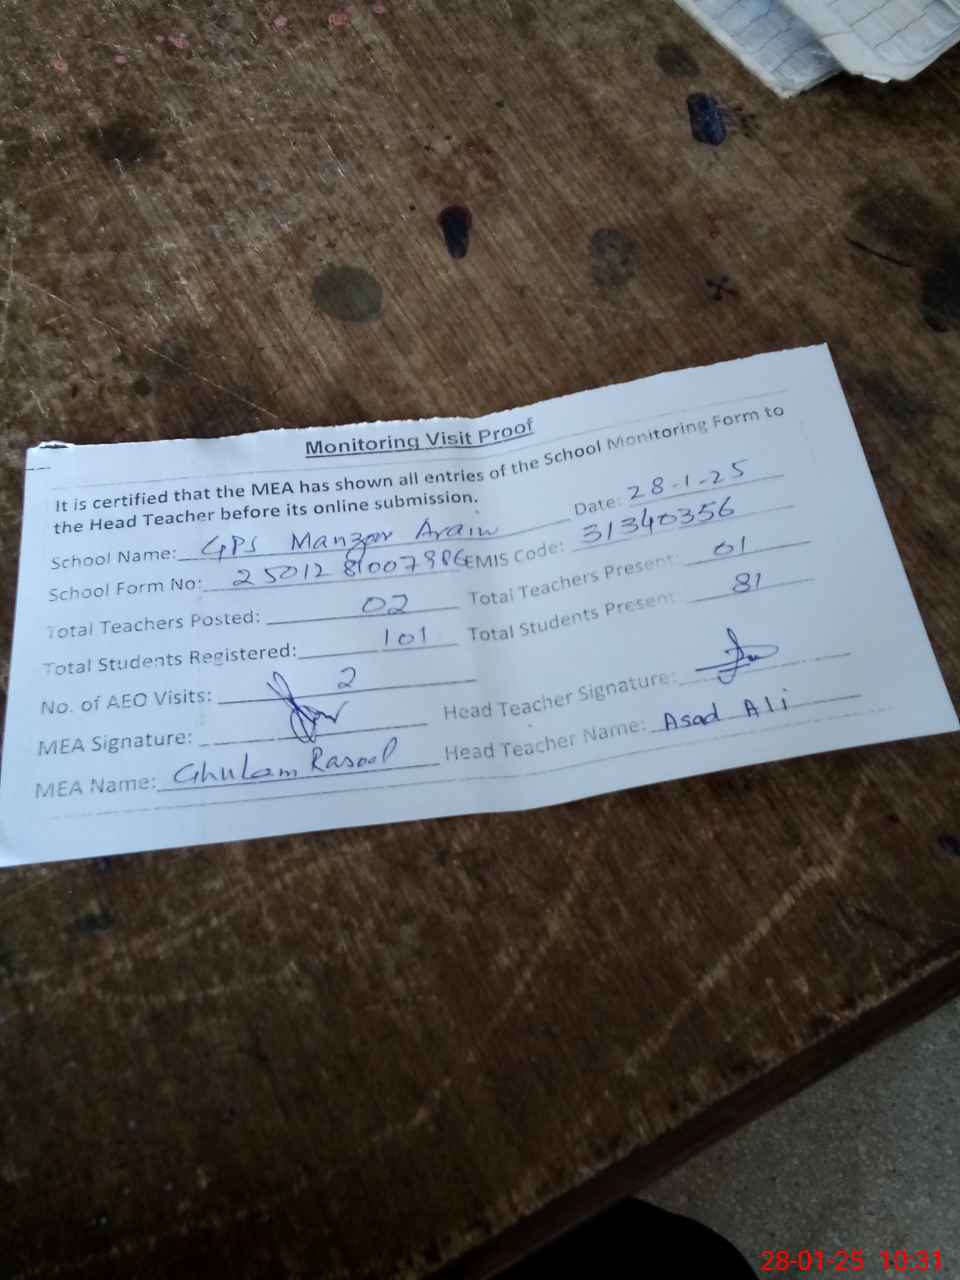 Monitoring Visit Proof
It is certified that the MEA has shown all entries of the School Monitoring Form to
the Head Teacher before its online submission.
Date: 28-1-25
School Name: GPS Manzoor Arain
School Form No: EMIS Code: 31340356
Total Teachers Posted: 02 Total Teachers Present: 01
Total Students Registered: 101 Total Students Present: 81
No. of AEO Visits: 2
MEA Signature: Head Teacher Signature:
MEA Name: Ghulam Rasool Head Teacher Name: Asad Ali
28-01-25 10:31